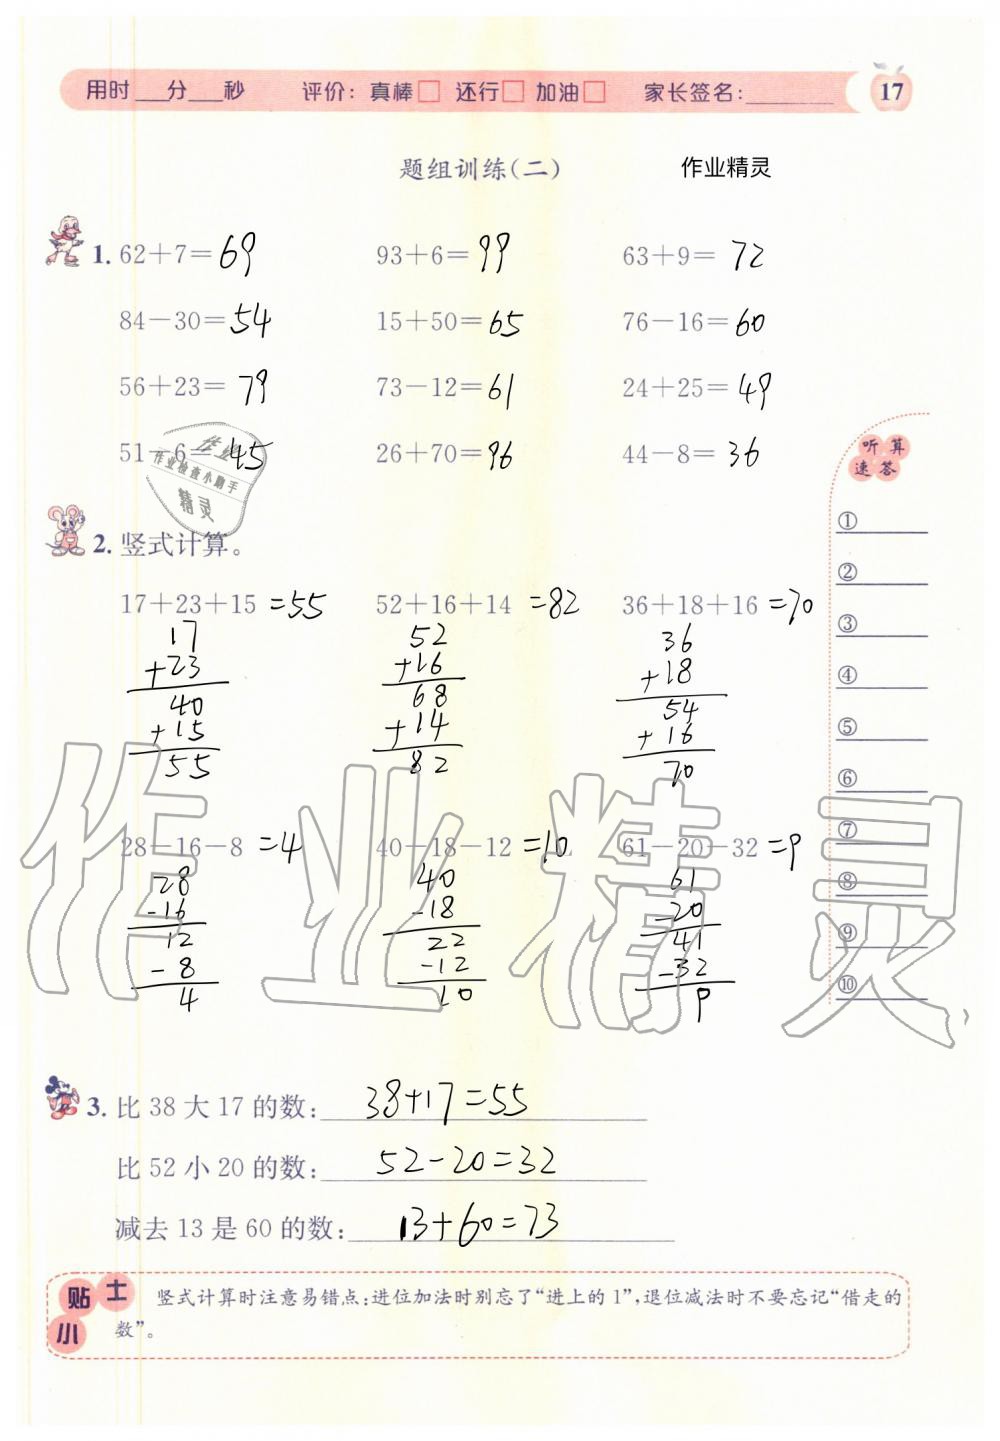 用时___分___秒 评价：真棒□ 还行□ 加油□ 家长签名：_______ 17
题组训练(二) 作业精灵
1. 62+7=69 93+6=99 63+9=72
84-30=54 15+50=65 76-16=60
56+23=79 73-12=61 24+25=49
51-6=45 26+70=96 44-8=36
作业
作业检查小助手
精灵
听算
速答
①
②
③
④
⑤
⑥
⑦
⑧
⑨
⑩
2. 竖式计算。
17+23+15=55 52+16+14=82 36+18+16=70
17 52 36
+23 +16 +18
40 68 54
+15 +14 +16
55 82 70
作业精灵
28-16-8=4 40-18-12=10 61-20-32=9
28 40 61
-16 -18 -20
12 22 41
-8 -12 -32
4 10 9
3. 比 38 大 17 的数：38+17=55
比 52 小 20 的数：52-20=32
减去 13 是 60 的数：13+60=73
小贴士
竖式计算时注意易错点：进位加法时别忘了“进上的 1”，退位减法时不要忘记“借走的
数”。